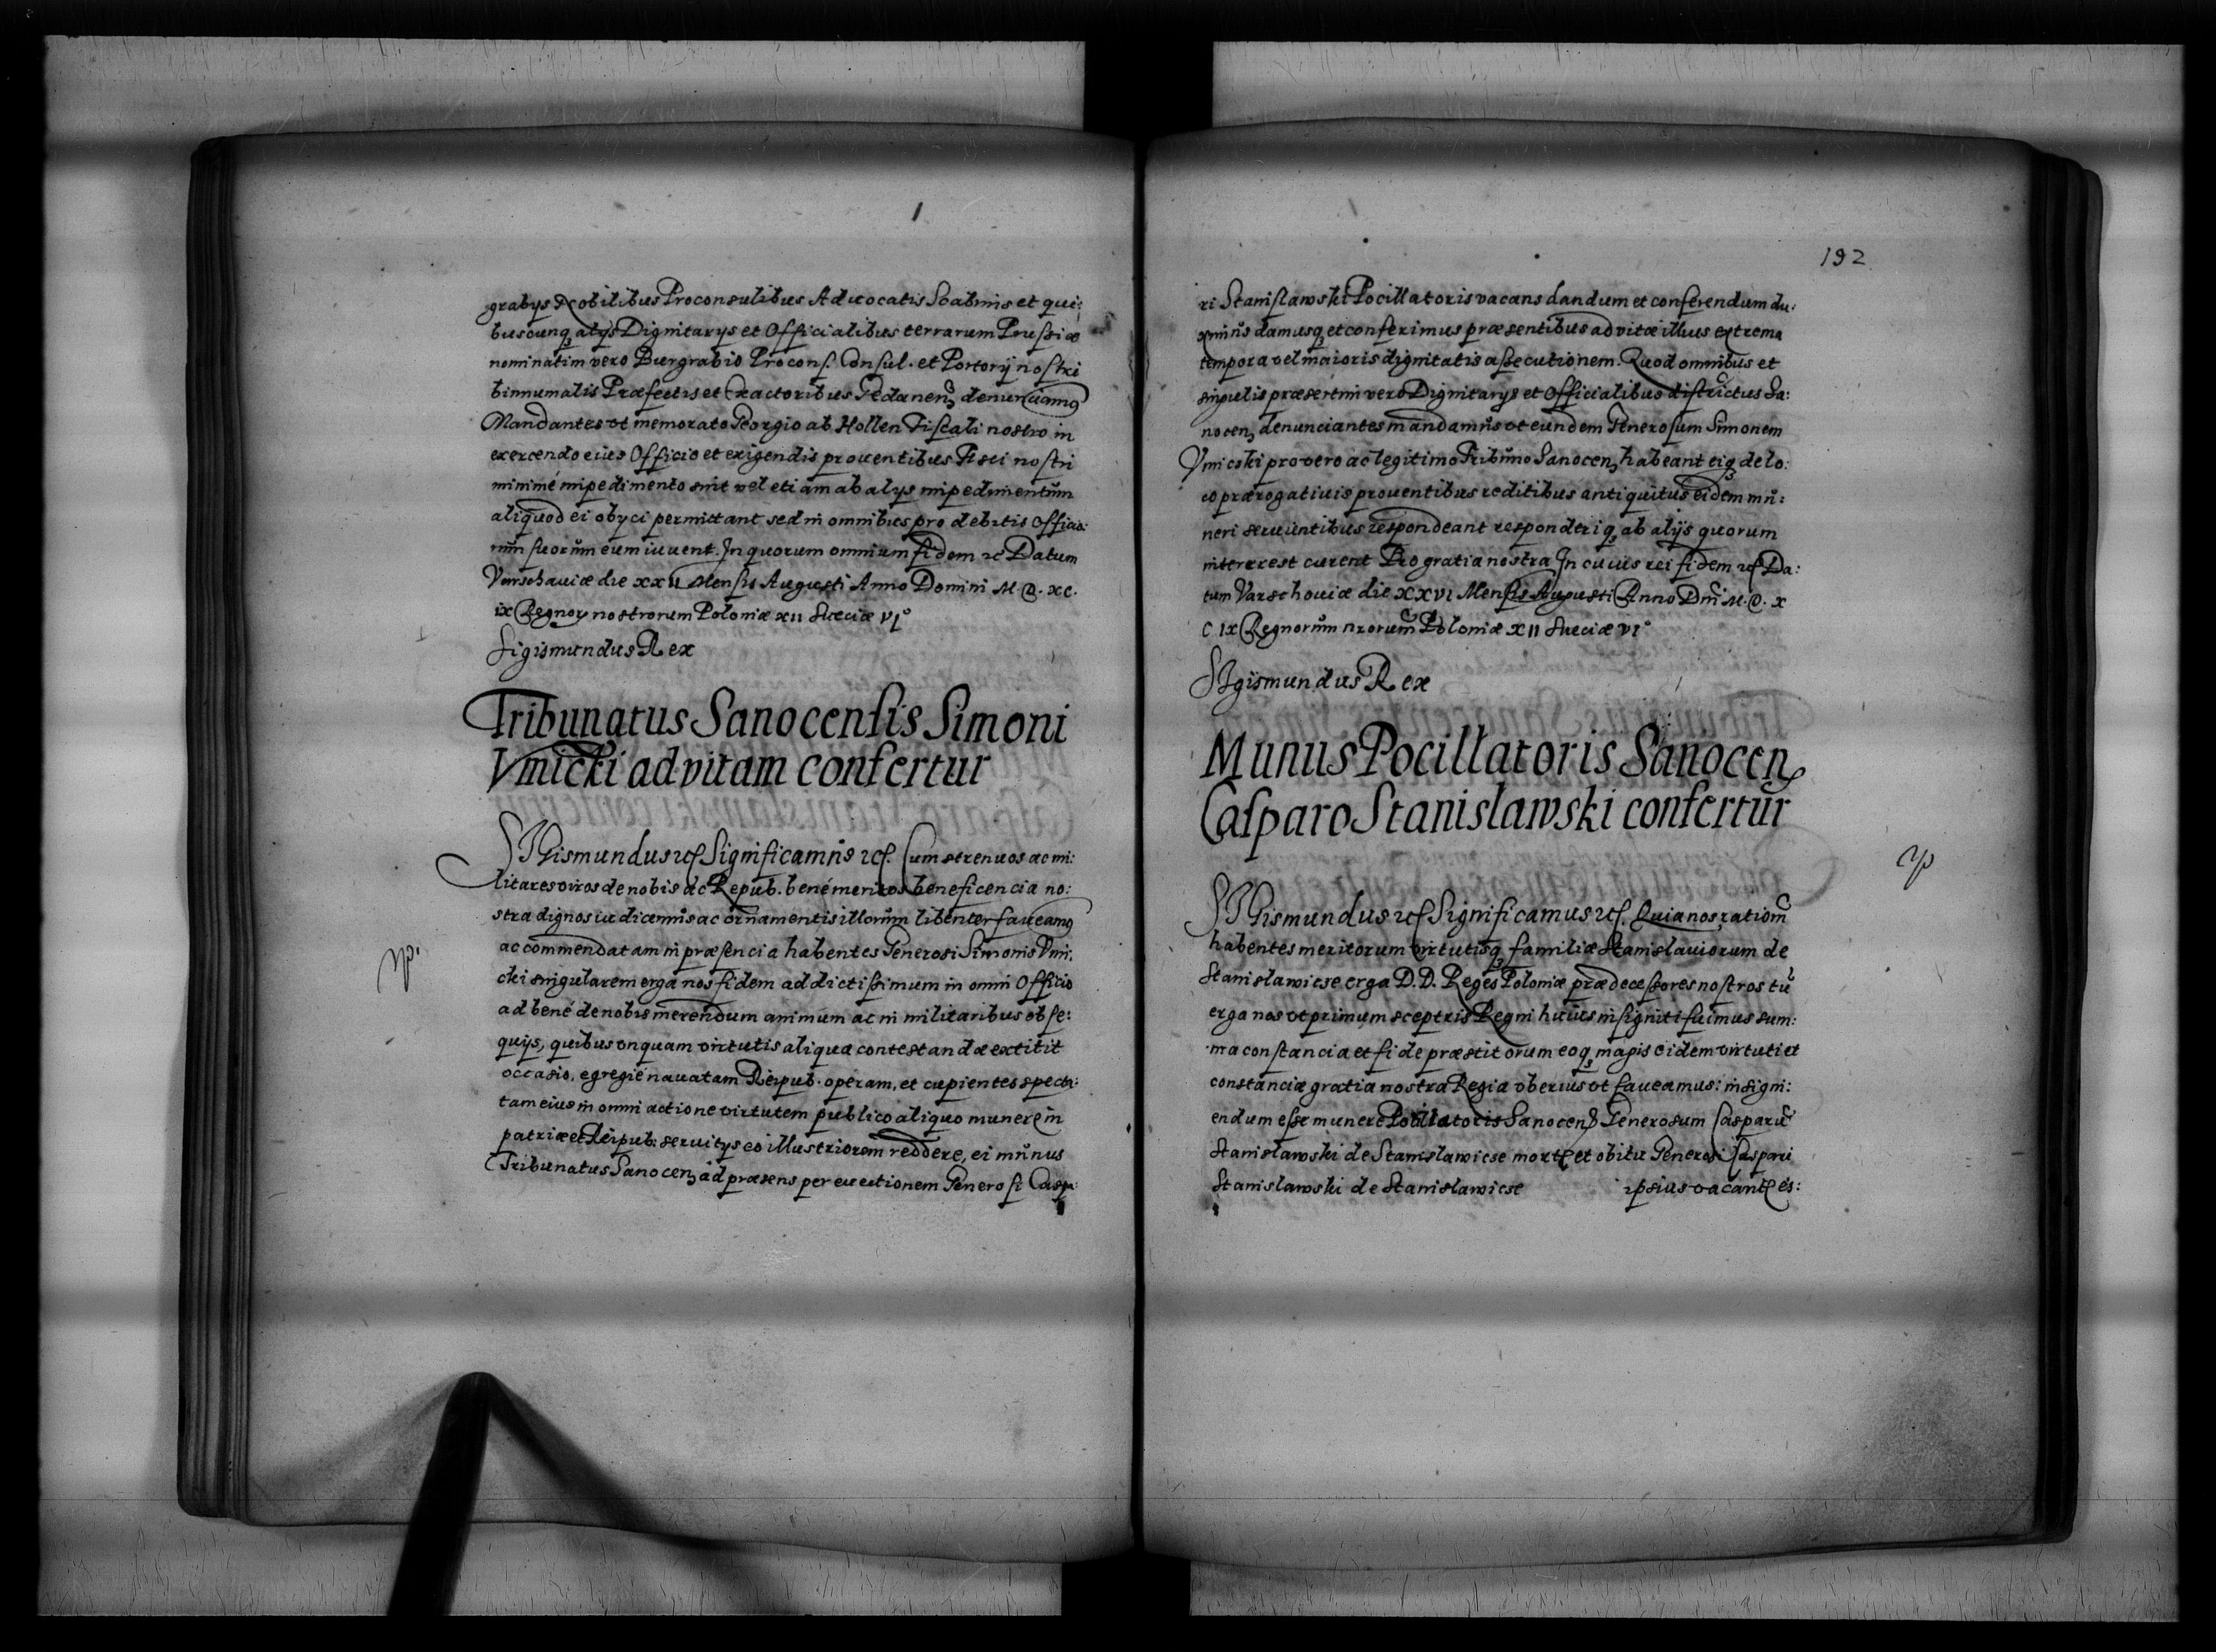 grabijs Nobilibus Proconsulibus Aduocatis Scabinis et qui:
buscunq₃ alijs Dignitarijs et Officialibus terrarum Prussiæ
nominatim vero Burgrabio Procons. Consul. et Portorij nostri
binnumalis Præfectis et Exactoribus Gedanen₃ denunciamus
Mandantes vt memorato Georgio ab Hollen Fiscali nostro in
exercendo eius Officio et exigendis prouentibus Fisci nostri
minimé impedimento sint vel etiam ab alijs impedimentum
aliquod ei obyci permittant sed in omnibus pro debitis Officio:
rum suorum eum iuuent. In quorum omnium fidem etc Datum
Varschauiæ die XXII Mensis Augusti Anno Domini M.D.XC.
ix Regnor nostrorum Poloniæ XII Sueciæ VI°
Sigismundus Rex
Tribunatus Sanocensis Simoni
Vmicki ad vitam confertur
SIGismundus etc Significamus etc. Cum strenuos ac mi:
litares viros de nobis ac Repub. bené meritos beneficencia no:
stra dignos iudicemus ac ornamentis illorum libenter faueamus
ac commendatam in præsencia habentes Generosi Simonis Vmi:
cki singularem erga nos fidem addictissimum in omni Officio
ad bené de nobis merendum animum ac in militaribus obse:
quijs, quibus vnquam virtutis aliqua contestandæ extitit
occasio, egregié nauatam Reipub. operam, et cupientes specta:
tam eius in omni actione virtutem publico aliquo munere in
patriæ et Reipub: seruitijs eo illustriorem reddere, ei munus
Tribunatus Sanocen₃ ad præsens per euectionem Generosi Caspa:
192
ri Stanislawski Pocillatoris vacans dandum et conferendum du:
ximus damusq₃ et conferimus præsentibus ad vitæ illius extrema
tempora vel maioris dignitatis assecutionem. Quod omnibus et
singulis præsertim vero Dignitarijs et Officialibus districtus Sa:
nocen₃ denunciantes mandamus vt eundem Generosum Simonem
Vmicki pro vero ac legitimo Tribuno Sanocen₃ habeant eiq₃ de lo:
co prærogatiuis prouentibus reditibus antiquitus eidem mu:
neri seruientibus respondeant responderiq₃ ab alijs quorum
intererest curent Pro gratia nostra In cuius rei fidem etc Da:
tum Varschouiæ die XXVI Mensis Augusti Anno Dni M.D.X
C IX Regnorum nrorum Poloniæ XII Sueciæ VI°
SIgismundus Rex
Munus Pocillatoris Sanocen
Casparo Stanislawski confertur
SIGismundus etc Significamus etc. Quia nos rationem
habentes meritorum virtutisq₃ familiæ Stanislauiorum de
Stanislawicse erga D.D. Reges Poloniæ prædecessores nostros tu
erga nos vt primum sceptris Regni huius insigniti fuimus sum:
ma constancia et fide præstitorum eoq₃ magis eidem virtuti et
constanciæ gratia nostra Regia vberius vt faueamus: insigni:
endum esse munere Pocillatoris Sanocen₃ Generosum Casparum
Stanislawski de Stanislawicse morte et obitu Generosi Caspari
Stanislawski de Stanislawicse ipsius vacante es: